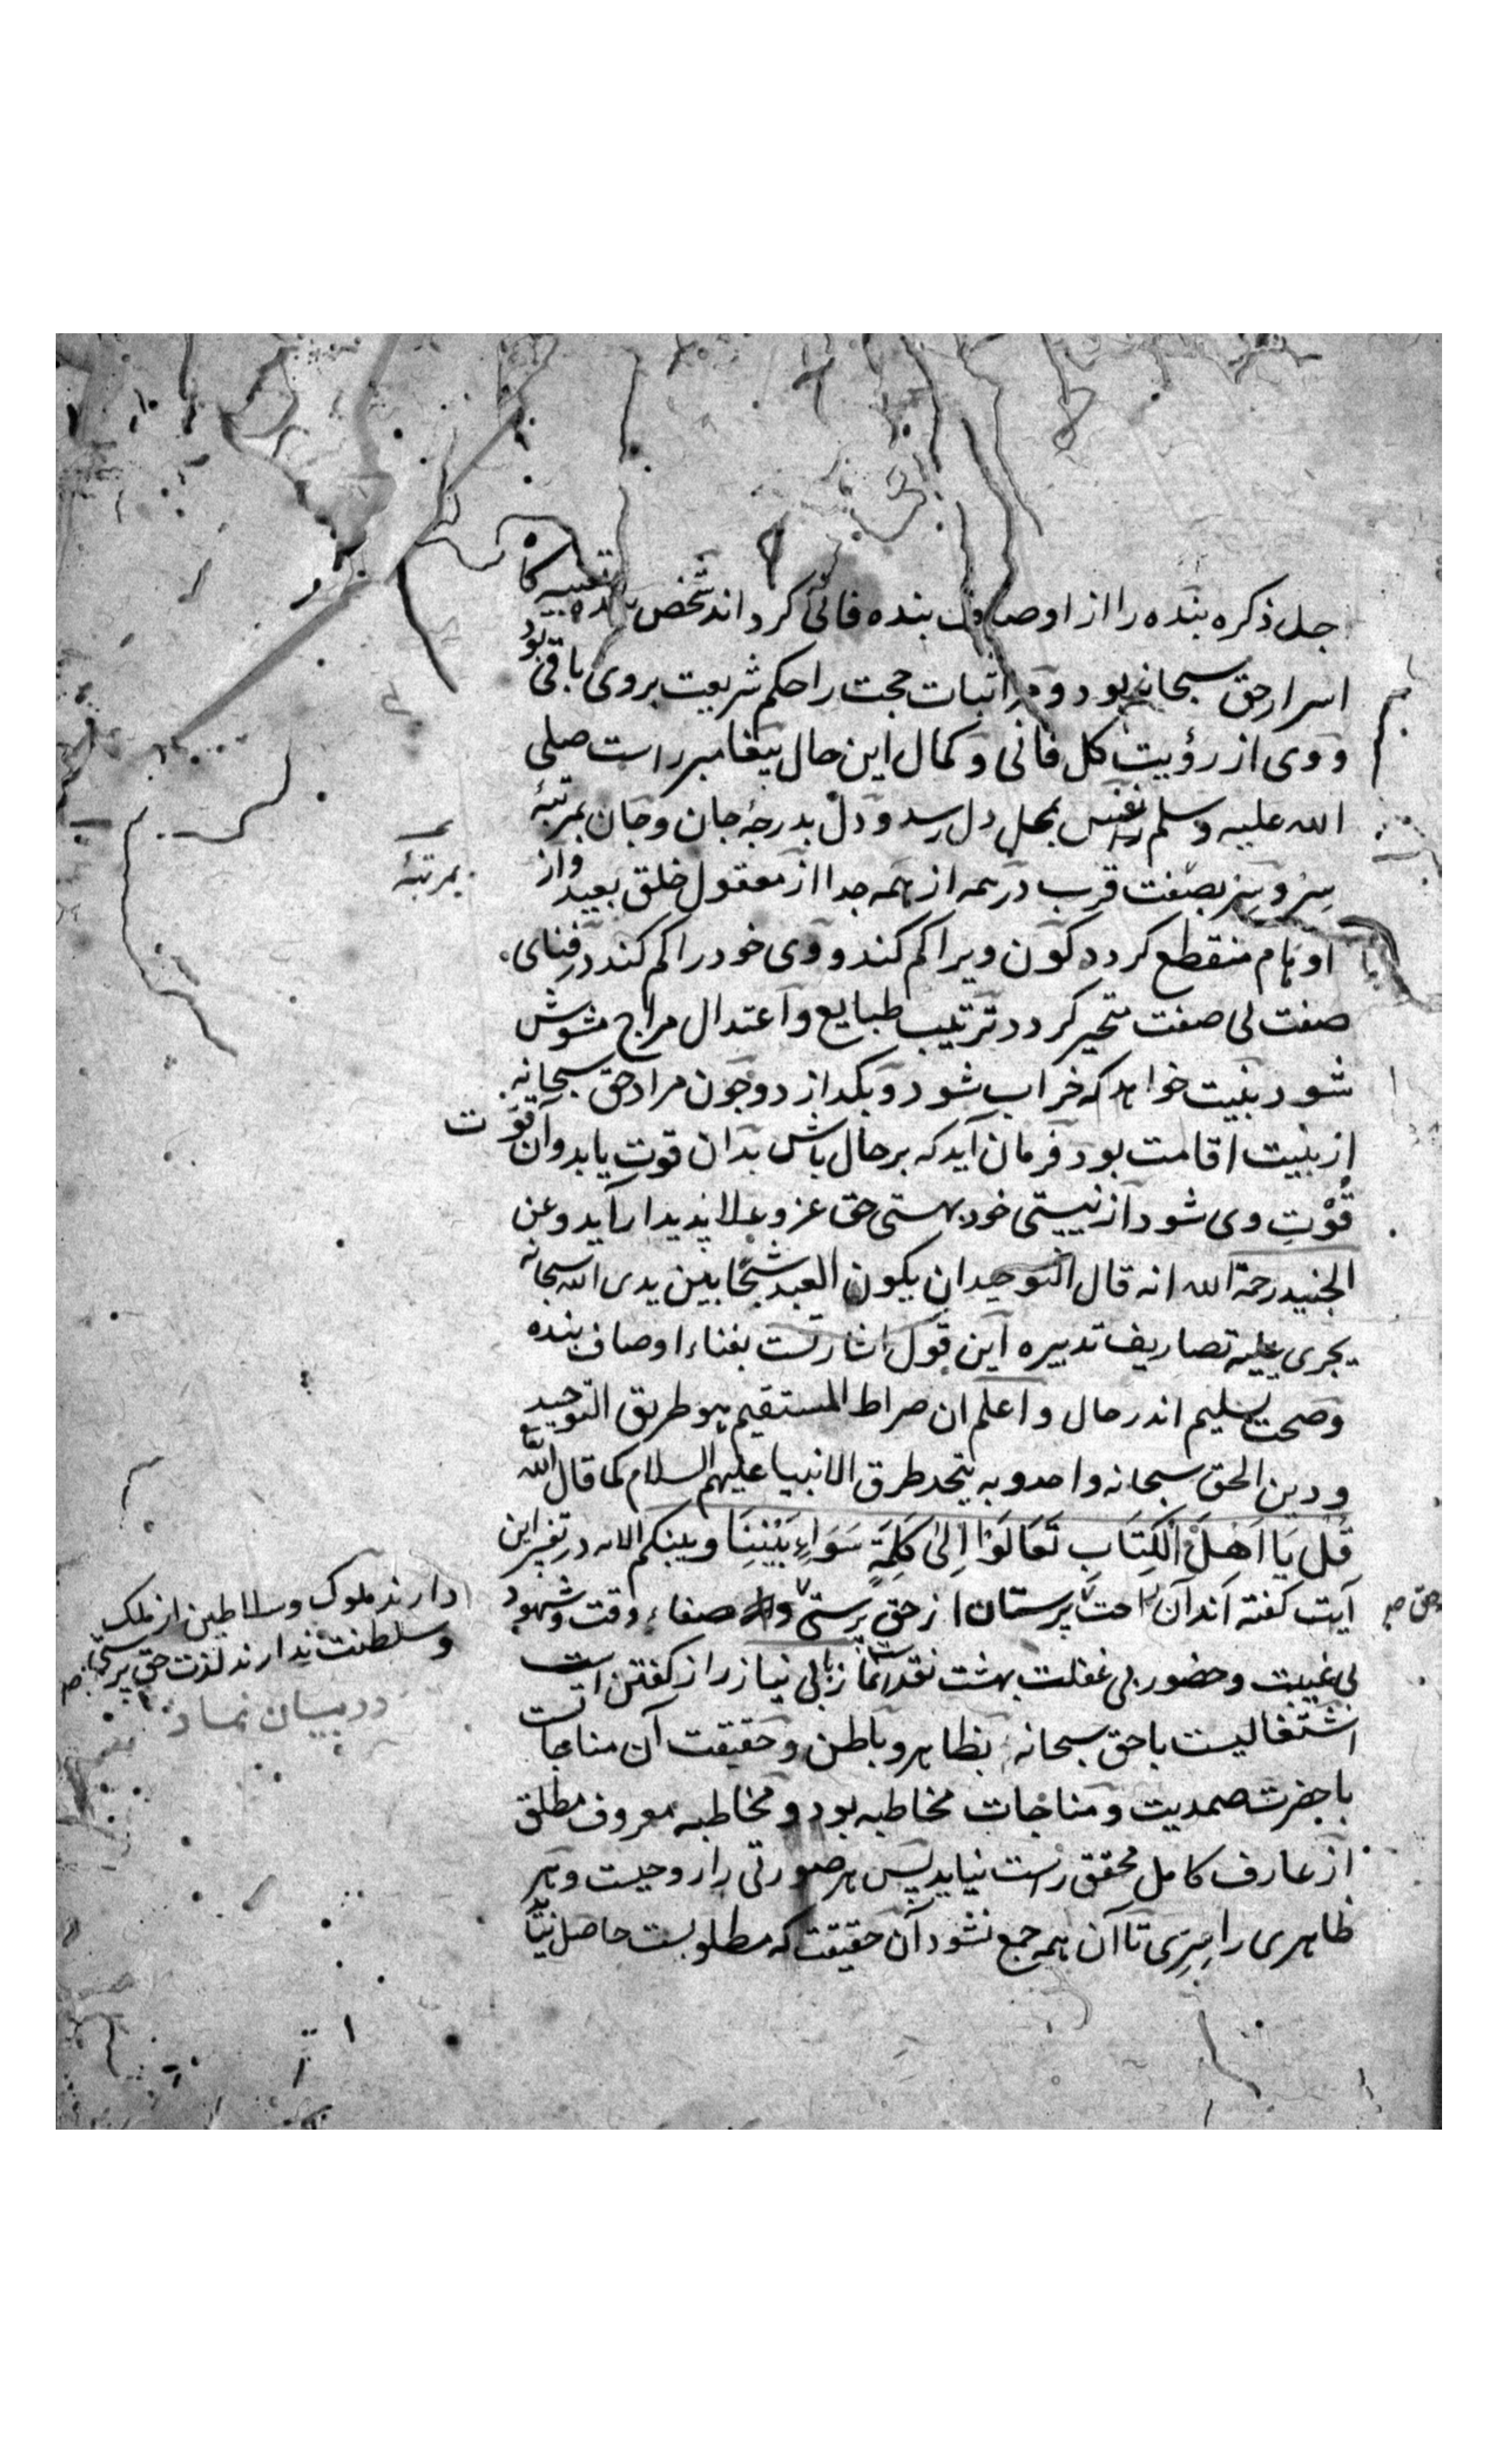 جل ذکره بنده را از اوصاف بنده فانی کرداند شخص تعبیه کاه
اسرار حق سبحانه بود و در اثبات حجت را حکم شریعت بروی باقی بود
و وی از رؤیت کل فانی و کمال این حال پیغامبر راست صلی
الله علیه وسلم نفس بمحل دل رسد و دل بدرجۀ جان و جان بمرتبۀ
سِرّ و سِرّ بصفت قرب در همه از همه جدا از معقول خلق بعید و از
بمرتبۀ
اوهام منقطع کردد کون ویرا کم کند و وی خود را کم کند در فنای
صفت بی صفت متحیر کردد ترتیب طبایع و اعتدال مزاج مشوش
شود بنیت خواهد که خراب شود و بکدازد و چون مراد حق سبحانه
از بنیت اقامت بود فرمان آید که بر حال باش بدان قوت یابد و آن قوّت
قُوْتِ وی شود از نیستی خود بهستی حق عز و علا پدیدار آید و عن
الجنید رحمة الله انه قال التوحید ان یکون العبد شبحًا بین یدی الله سبحانه
یجری علیه تصاریف تدبیره این قول اشارتست بفناء اوصاف بنده
و صحت تسلیم اندر حال و اعلم ان صراط المستقیم هو طریق التوحید
و دین الحق سبحانه واحد و به یتحد طرق الانبیا علیهم السلام کما قال الله تع
قُل یَا اَهْلَ الْکِتَابِ تَعَالَوْا اِلیٰ کَلِمَةٍ سَوَاءٍ بَیْنَنَا وبینکم الایه در تفسیر این
آیت کفته اند آن راحت پرستان از حق پرستی صفاء وقت و شهود
دارند ملوک و سلاطین از ملک
و سلطنت ندارند لذت حق پرستی صح
بی غیبت و حضور بی غفلت بهشت نقد نماز با بی نیاز راز کفتن است
در بیان نماز
اشتغالیست با حق سبحانه بظاهر و باطن و حقیقت آن مناجات
با حضرت صمدیت و مناجات مخاطبه بود و مخاطبه معروف مطلق
از عارف کامل محقق راست نیاید پس هر صورتی را روحیست و هر
ظاهری را سِرّی تا آن همه جمع نشود آن حقیقت که مطلوبست حاصل نیاید